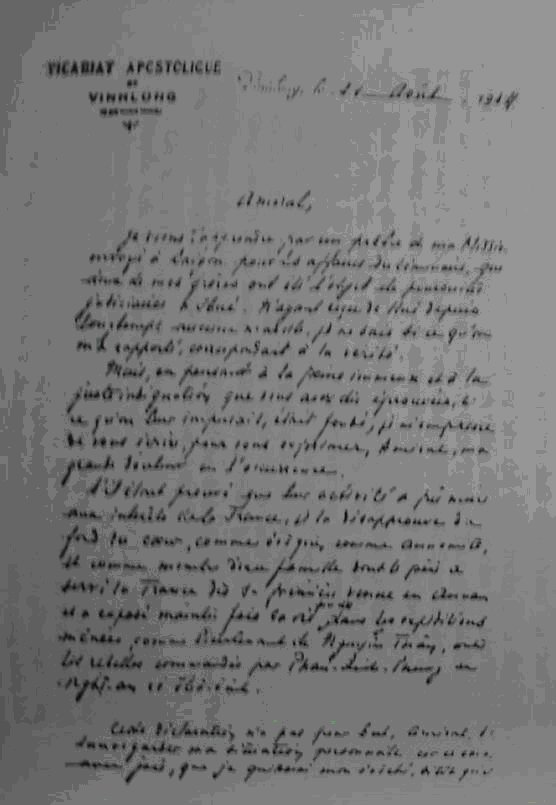 VICARIAT APOSTOLIQUE
DE
VINHLONG
le 21 Août 1944
Amiral,
Je viens d'apprendre, par un prêtre de ma Mission
envoyé à Saigon pour les affaires du séminaire, que
deux de mes frères ont été l'objet de poursuites
judiciaires à Hué. N'ayant reçu de Hué depuis
longtemps aucune nouvelle, je ne sais si ce qu'on
m'a rapporté, correspondait à la vérité.
Mais, en pensant à la peine immense et à la
juste indignation que vous avez dû éprouver, si
ce qu'on leur imputait, était fondé, je m'empresse
de vous écrire, pour vous exprimer, Amiral, ma
grande douleur en l'occurrence.
S'il était prouvé que leur activité a pu nuire
aux intérêts de la France, je la désapprouve du
fond du cœur, comme évêque, comme annamite,
et comme membre d'une famille dont le père a
servi la France dès sa première venue en Annam
et a exposé maintes fois sa vie dans les expéditions
menées, comme lieutenant de Nguyễn Thân, contre
les rebelles commandés par Phan-đình-Phùng en
Nghệ-an et
Cette déclaration n'a pas pour but, Amiral, de
sauvegarder ma situation personnelle, car
que je quitterai mon évêché,